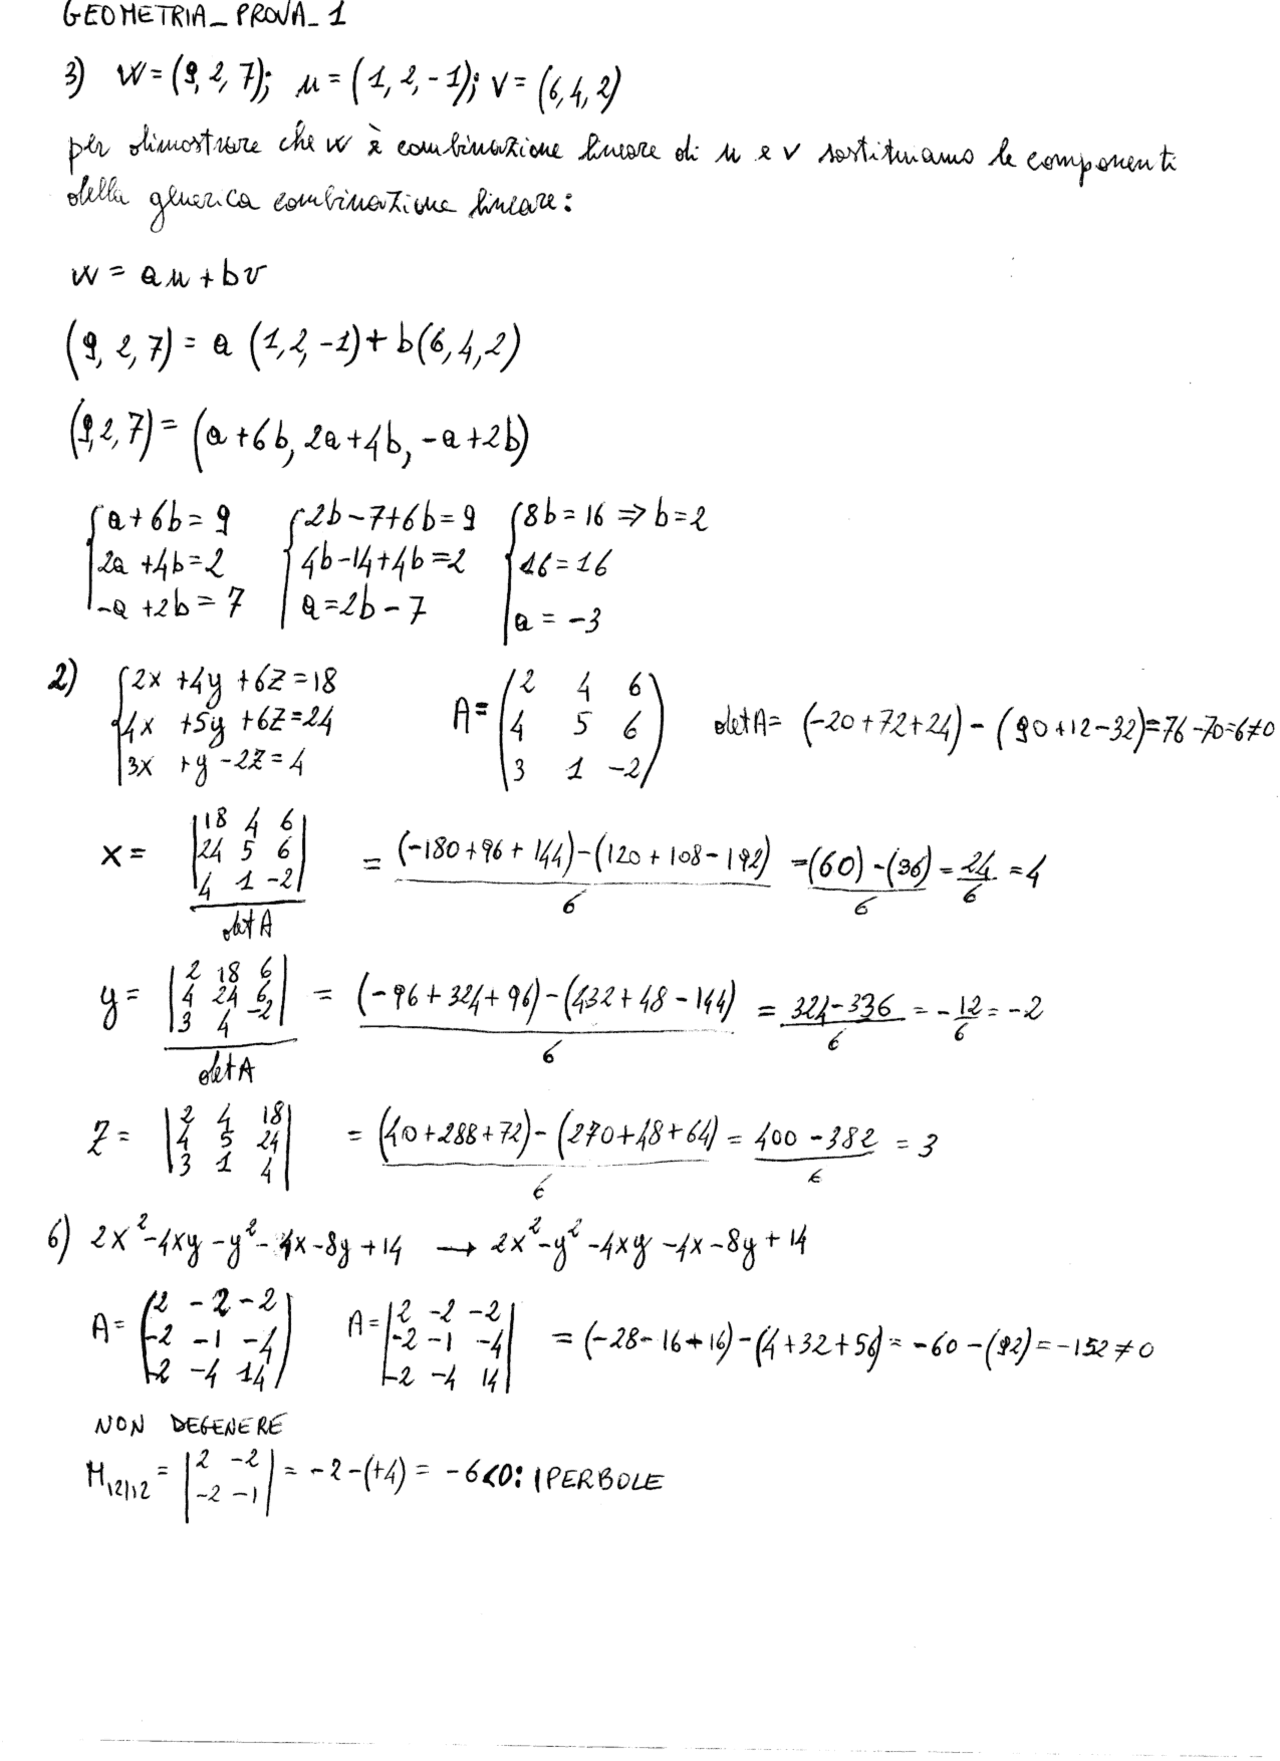 GEOMETRIA_PROVA_1
3) W=(9,2,7); u=(1,2,-1); v=(6,4,2)
per dimostrare che w è combinazione lineare di u e v sostituiamo le componenti
della generica combinazione lineare:
w = au+bv
(9,2,7) = a (1,2,-1)+ b(6,4,2)
(9,2,7) = (a+6b, 2a+4b, -a+2b)
{a+6b=9 {2b-7+6b=9 {8b=16 ⇒ b=2
2a+4b=2 4b-14+4b=2 16=16
-a+2b=7 a=2b-7 a=-3
2) {2x+4y+6z=18 A=(2 4 6
4x+5y+6z=24 4 5 6 detA= (-20+72+24)-(90+12-32)=76-70=6≠0
3x+y-2z=4 3 1 -2)
x= |18 4 6
24 5 6
4 1 -2| / detA = (-180+96+144)-(120+108-192) / 6 = (60)-(36) / 6 = 24/6 = 4
y= |2 18 6
4 24 6
3 4 -2| / detA = (-96+324+96)-(432+48-144) / 6 = 324-336 / 6 = -12/6 = -2
Z= |2 4 18
4 5 24
3 1 4| = (40+288+72)-(270+48+64) / 6 = 400-382 / 6 = 3
6) 2x²-4xy-y²-4x-8y+14 → 2x²-y²-4xy-4x-8y+14
A=(2 -2 -2 A=|2 -2 -2
-2 -1 -4 -2 -1 -4 = (-28-16+16)-(4+32+56)= -60-(92)=-152≠0
-2 -4 14) -2 -4 14|
NON DEGENERE
M12|12 = |2 -2
-2 -1| = -2-(+4) = -6<0: IPERBOLE